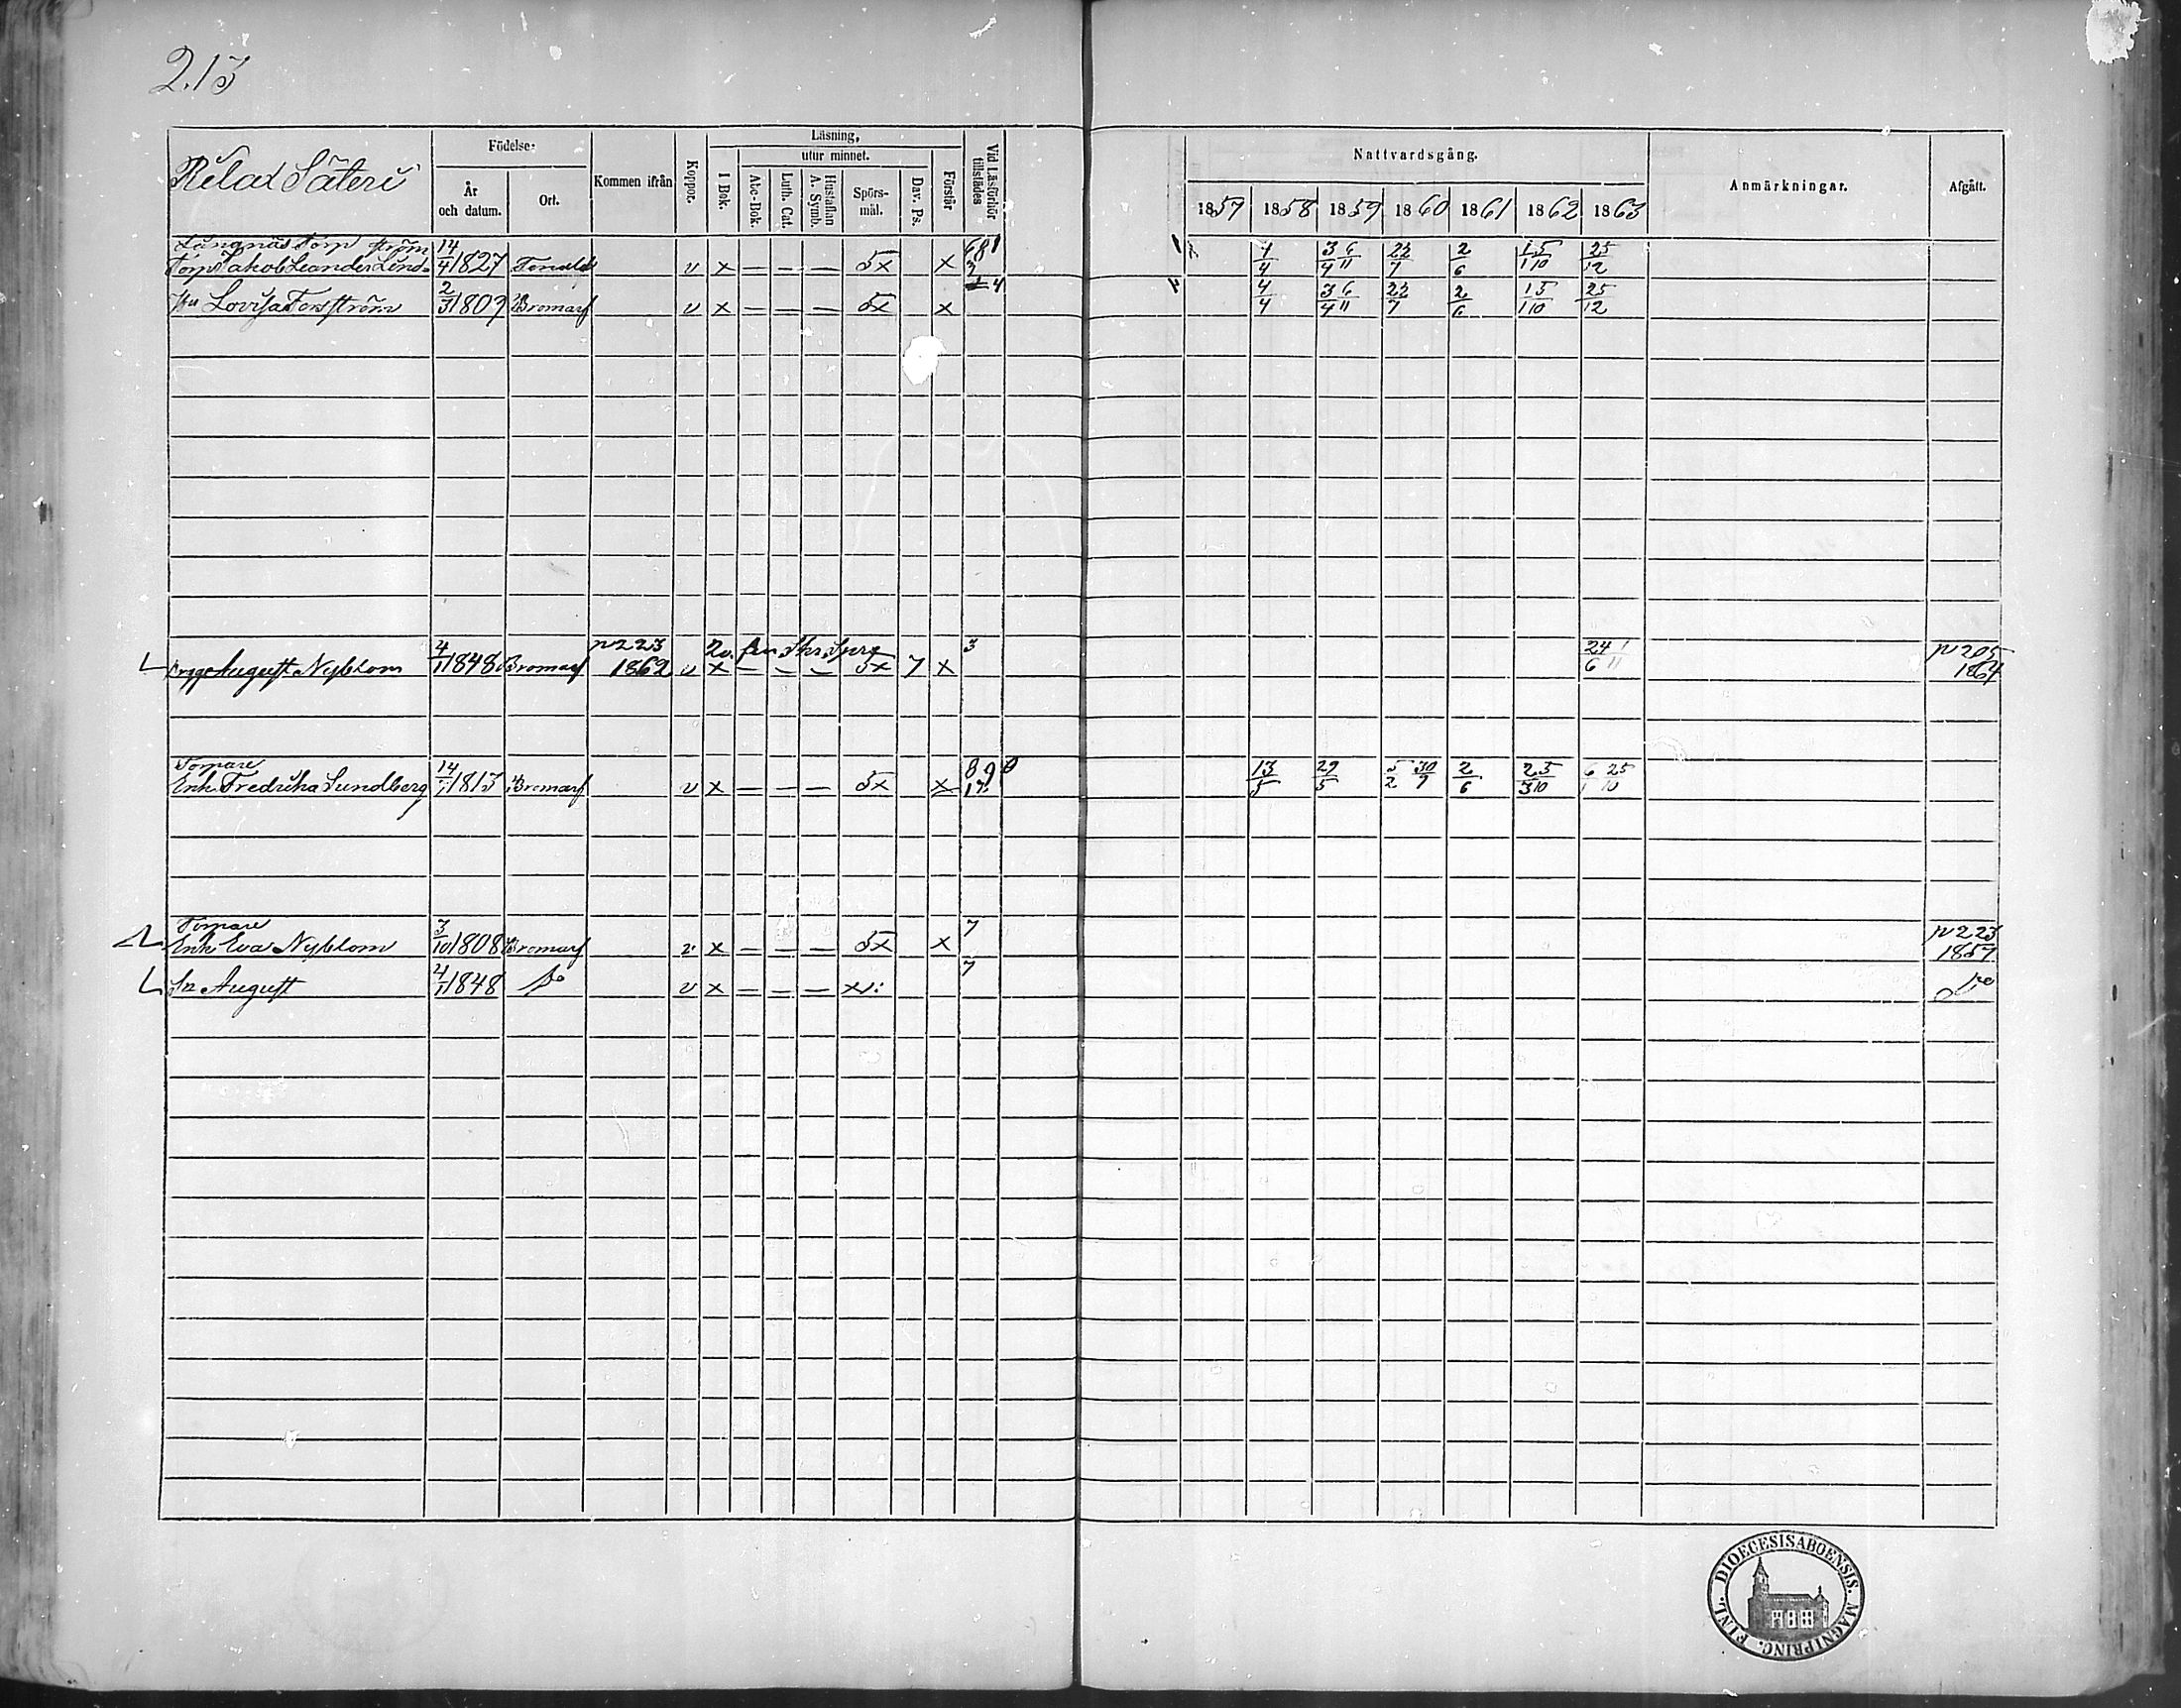 213
Rilax Säteri
Födelse-
År och datum.
Ort.
Kommen ifrån
Koppor.
Läsning,
I Bok.
utur minnet.
Abc-Bok.
Luth. Cat.
Hustaflan A. Symb.
Spörs-mål.
Dav. Ps.
Förstår
Vid Läsförhör tillstädes
Nattvardsgång.
1857 1858 1859 1860 1861 1862 1863
Anmärkningar.
Afgått.
Långnäs Torp ström
Torp Jakob Leander Lind- 14/4 1827 Tenala v x — — — 5x x 4/4 3/4 6/11 22/7 2/6 15/10 25/12
Hu Lovisa Forsström 2/3 1809 Bromarf v x — — — 5x x 4/4 3/4 6/11 22/7 2/6 15/10 25/12
p 223 3 24 p 205
August Nyblom 4/11 1848 Bromarf 1862 v x — — — 5x 7 x 6 11 1864
Torpare
Enk. Fredrika Sundberg 14/ 1813 Bromarf v x — — — 5x x 13/5 29/5 5/2 30/9 2/6 25/10 6 25/10
Torpare
Enk Eva Nyblom 3/10 1808 Bromarf v x — — — 5x x 7 p 223 1857
Sn August 4/11 1848 Do v x — — — xv: 7 Do
FINL. DIOECESIS ABOENSIS. MAGNI PRINC.